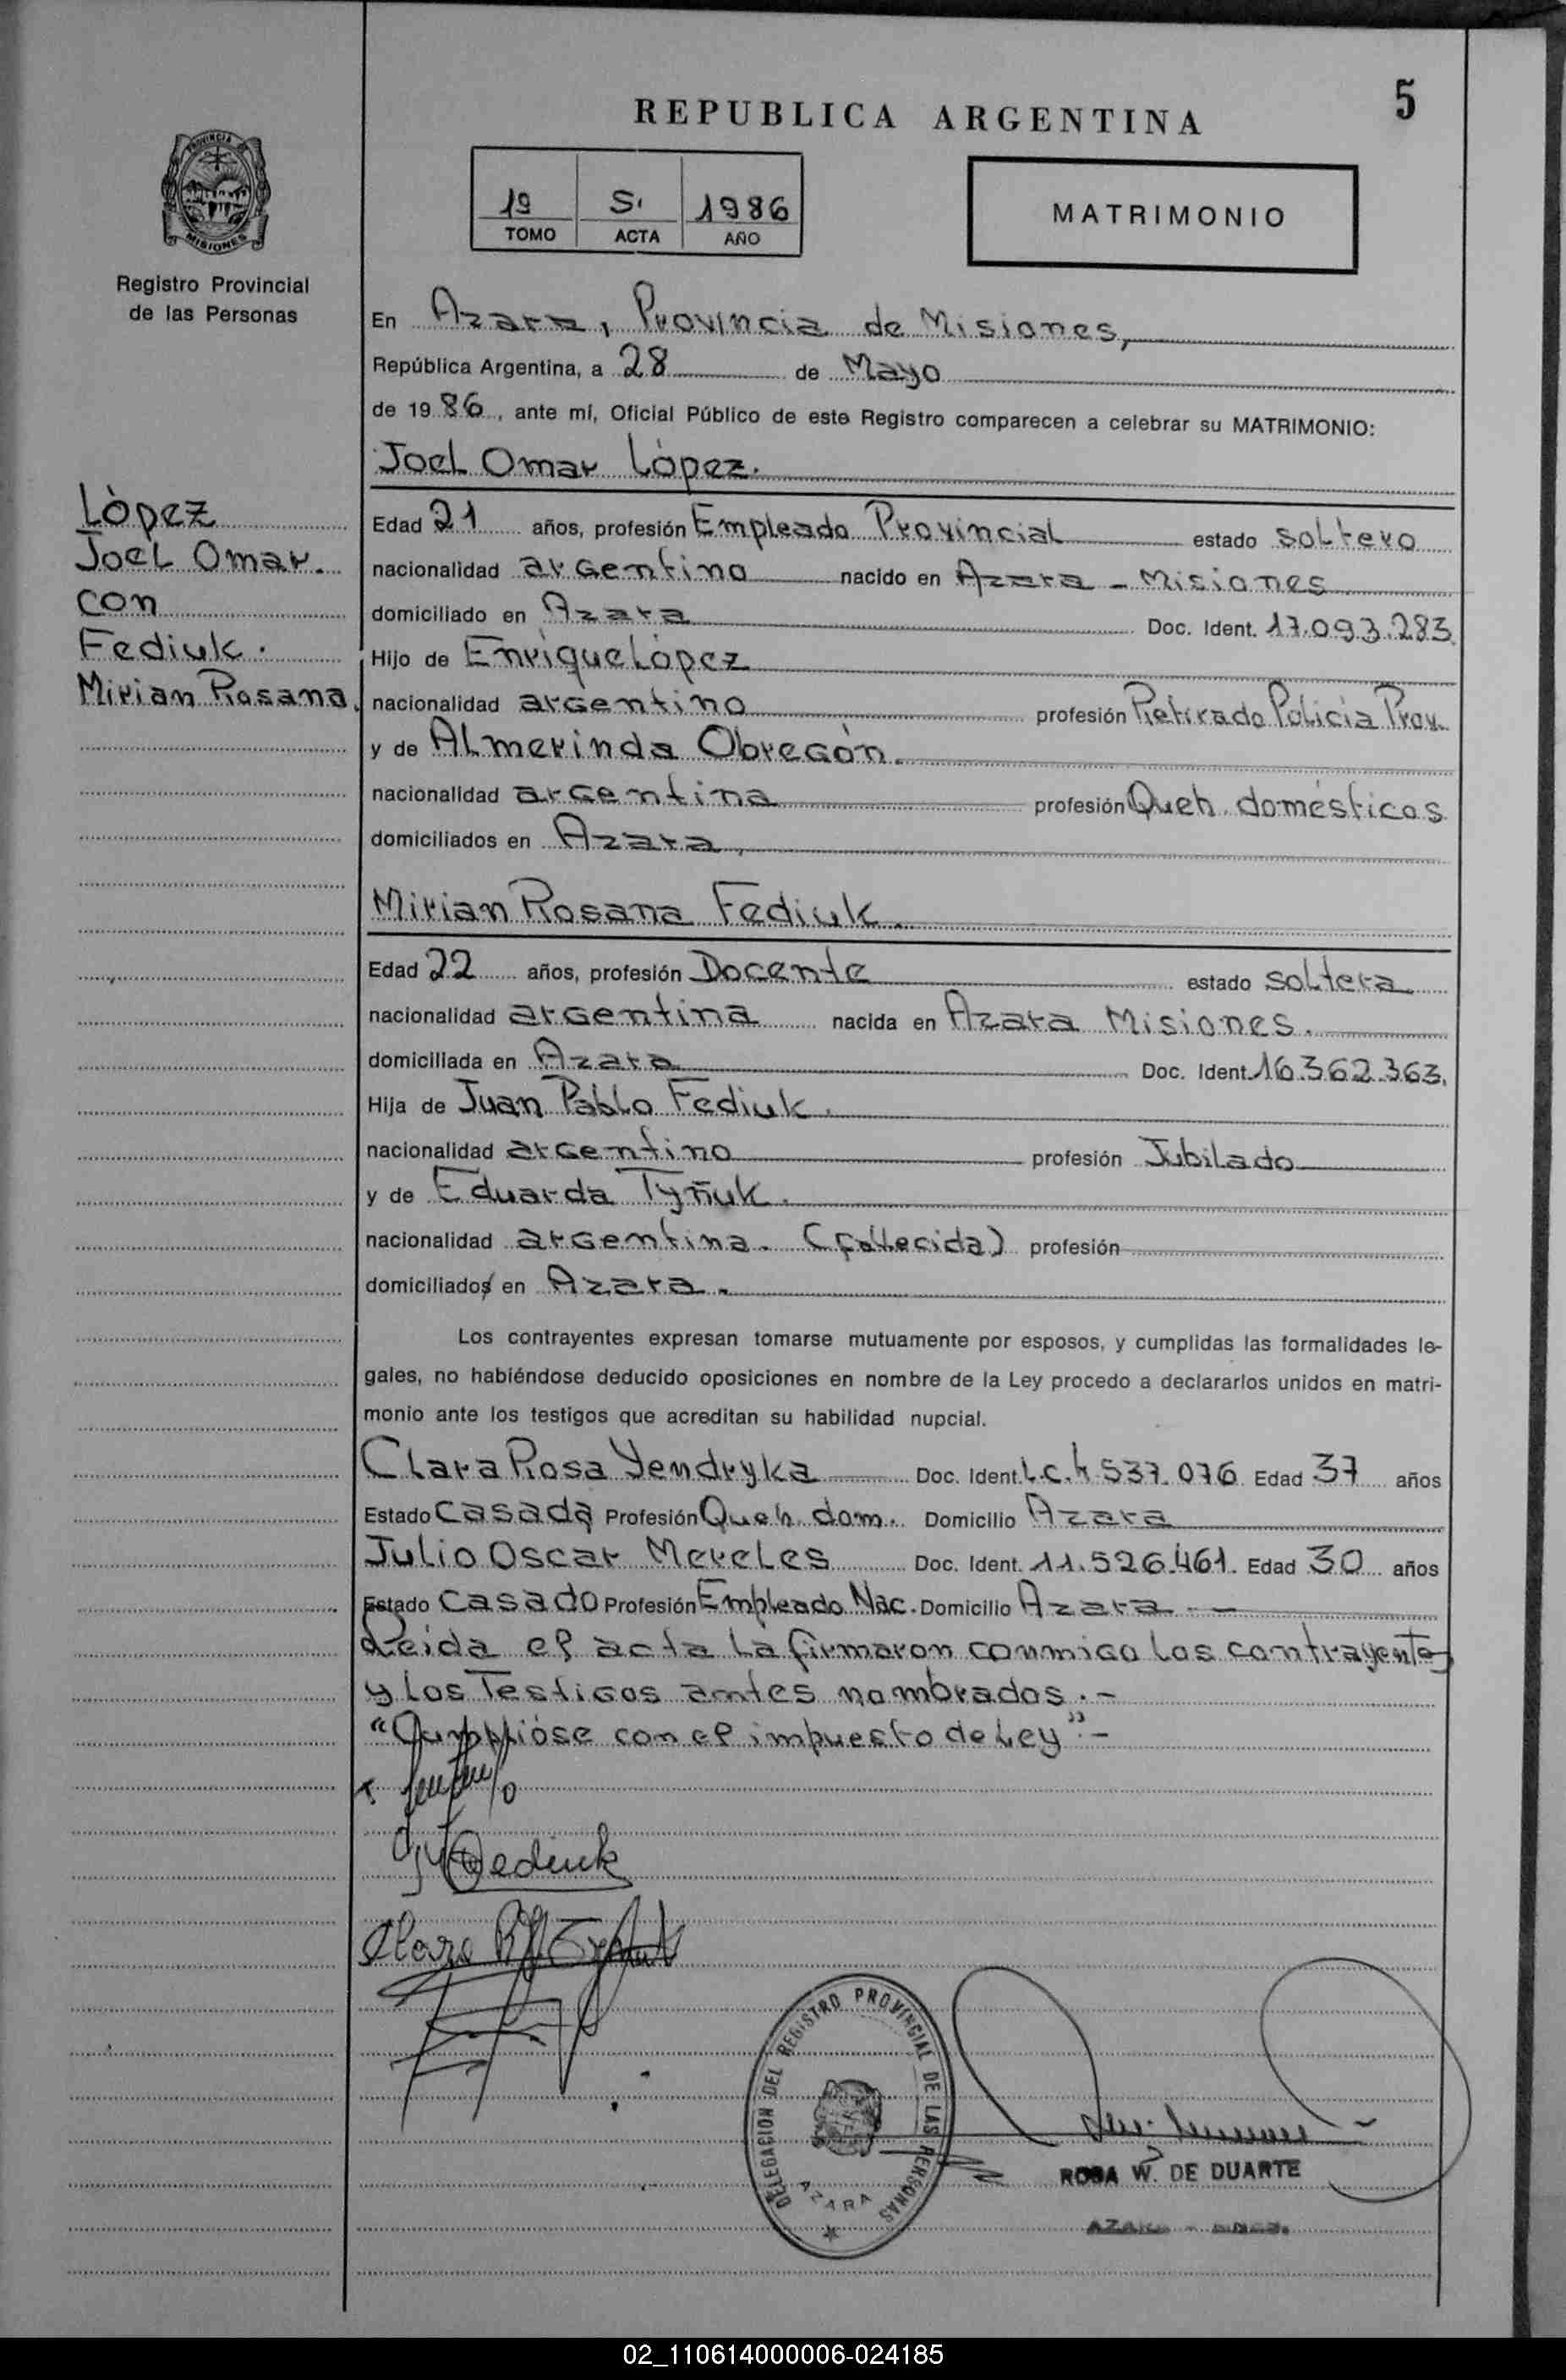 5
REPUBLICA ARGENTINA
PROVINCIA DE
MISIONES
19 5. 1986
TOMO ACTA AÑO
MATRIMONIO
Registro Provincial
de las Personas
López
Joel Omar.
con
Fediuk.
Mirian Rosana.
En Azara, Provincia de Misiones,
República Argentina, a 28 de Mayo
de 1986, ante mí, Oficial Público de este Registro comparecen a celebrar su MATRIMONIO:
Joel Omar López.
Edad 21 años, profesión Empleado Provincial estado soltero
nacionalidad argentino nacido en Azara - Misiones
domiciliado en Azara Doc. Ident. 17.093.283
Hijo de Enrique López
nacionalidad argentino profesión Retirado Policía Prov.
y de Almerinda Obregón.
nacionalidad argentina profesión Queh. domésticos
domiciliados en Azara,
Mirian Rosana Fediuk.
Edad 22 años, profesión Docente estado soltera
nacionalidad argentina nacida en Azara Misiones.
domiciliada en Azara Doc. Ident. 16.362.363.
Hija de Juan Pablo Fediuk.
nacionalidad argentino profesión Jubilado
y de Eduarda Tyñuk.
nacionalidad argentina. (fallecida) profesión
domiciliados en Azara.
Los contrayentes expresan tomarse mutuamente por esposos, y cumplidas las formalidades le-
gales, no habiéndose deducido oposiciones en nombre de la Ley procedo a declararlos unidos en matri-
monio ante los testigos que acreditan su habilidad nupcial.
Clara Rosa Yendryka Doc. Ident. L.C. 4.537.076 Edad 37 años
Estado casada Profesión Queh. dom. Domicilio Azara
Julio Oscar Mereles Doc. Ident. 11.526.461. Edad 30 años
Estado casado Profesión Empleado Nac. Domicilio Azara.-
Leida el acta la firmaron conmigo los contrayentes
y los Testigos antes nombrados.-
"Cumplióse con el impuesto de Ley".-
Fediuk
Clara R
DELEGACION DEL REGISTRO PROVINCIAL DE LAS PERSONAS
AZARA
ROSA W. DE DUARTE
AZARA - MNES.
02_110614000006-024185